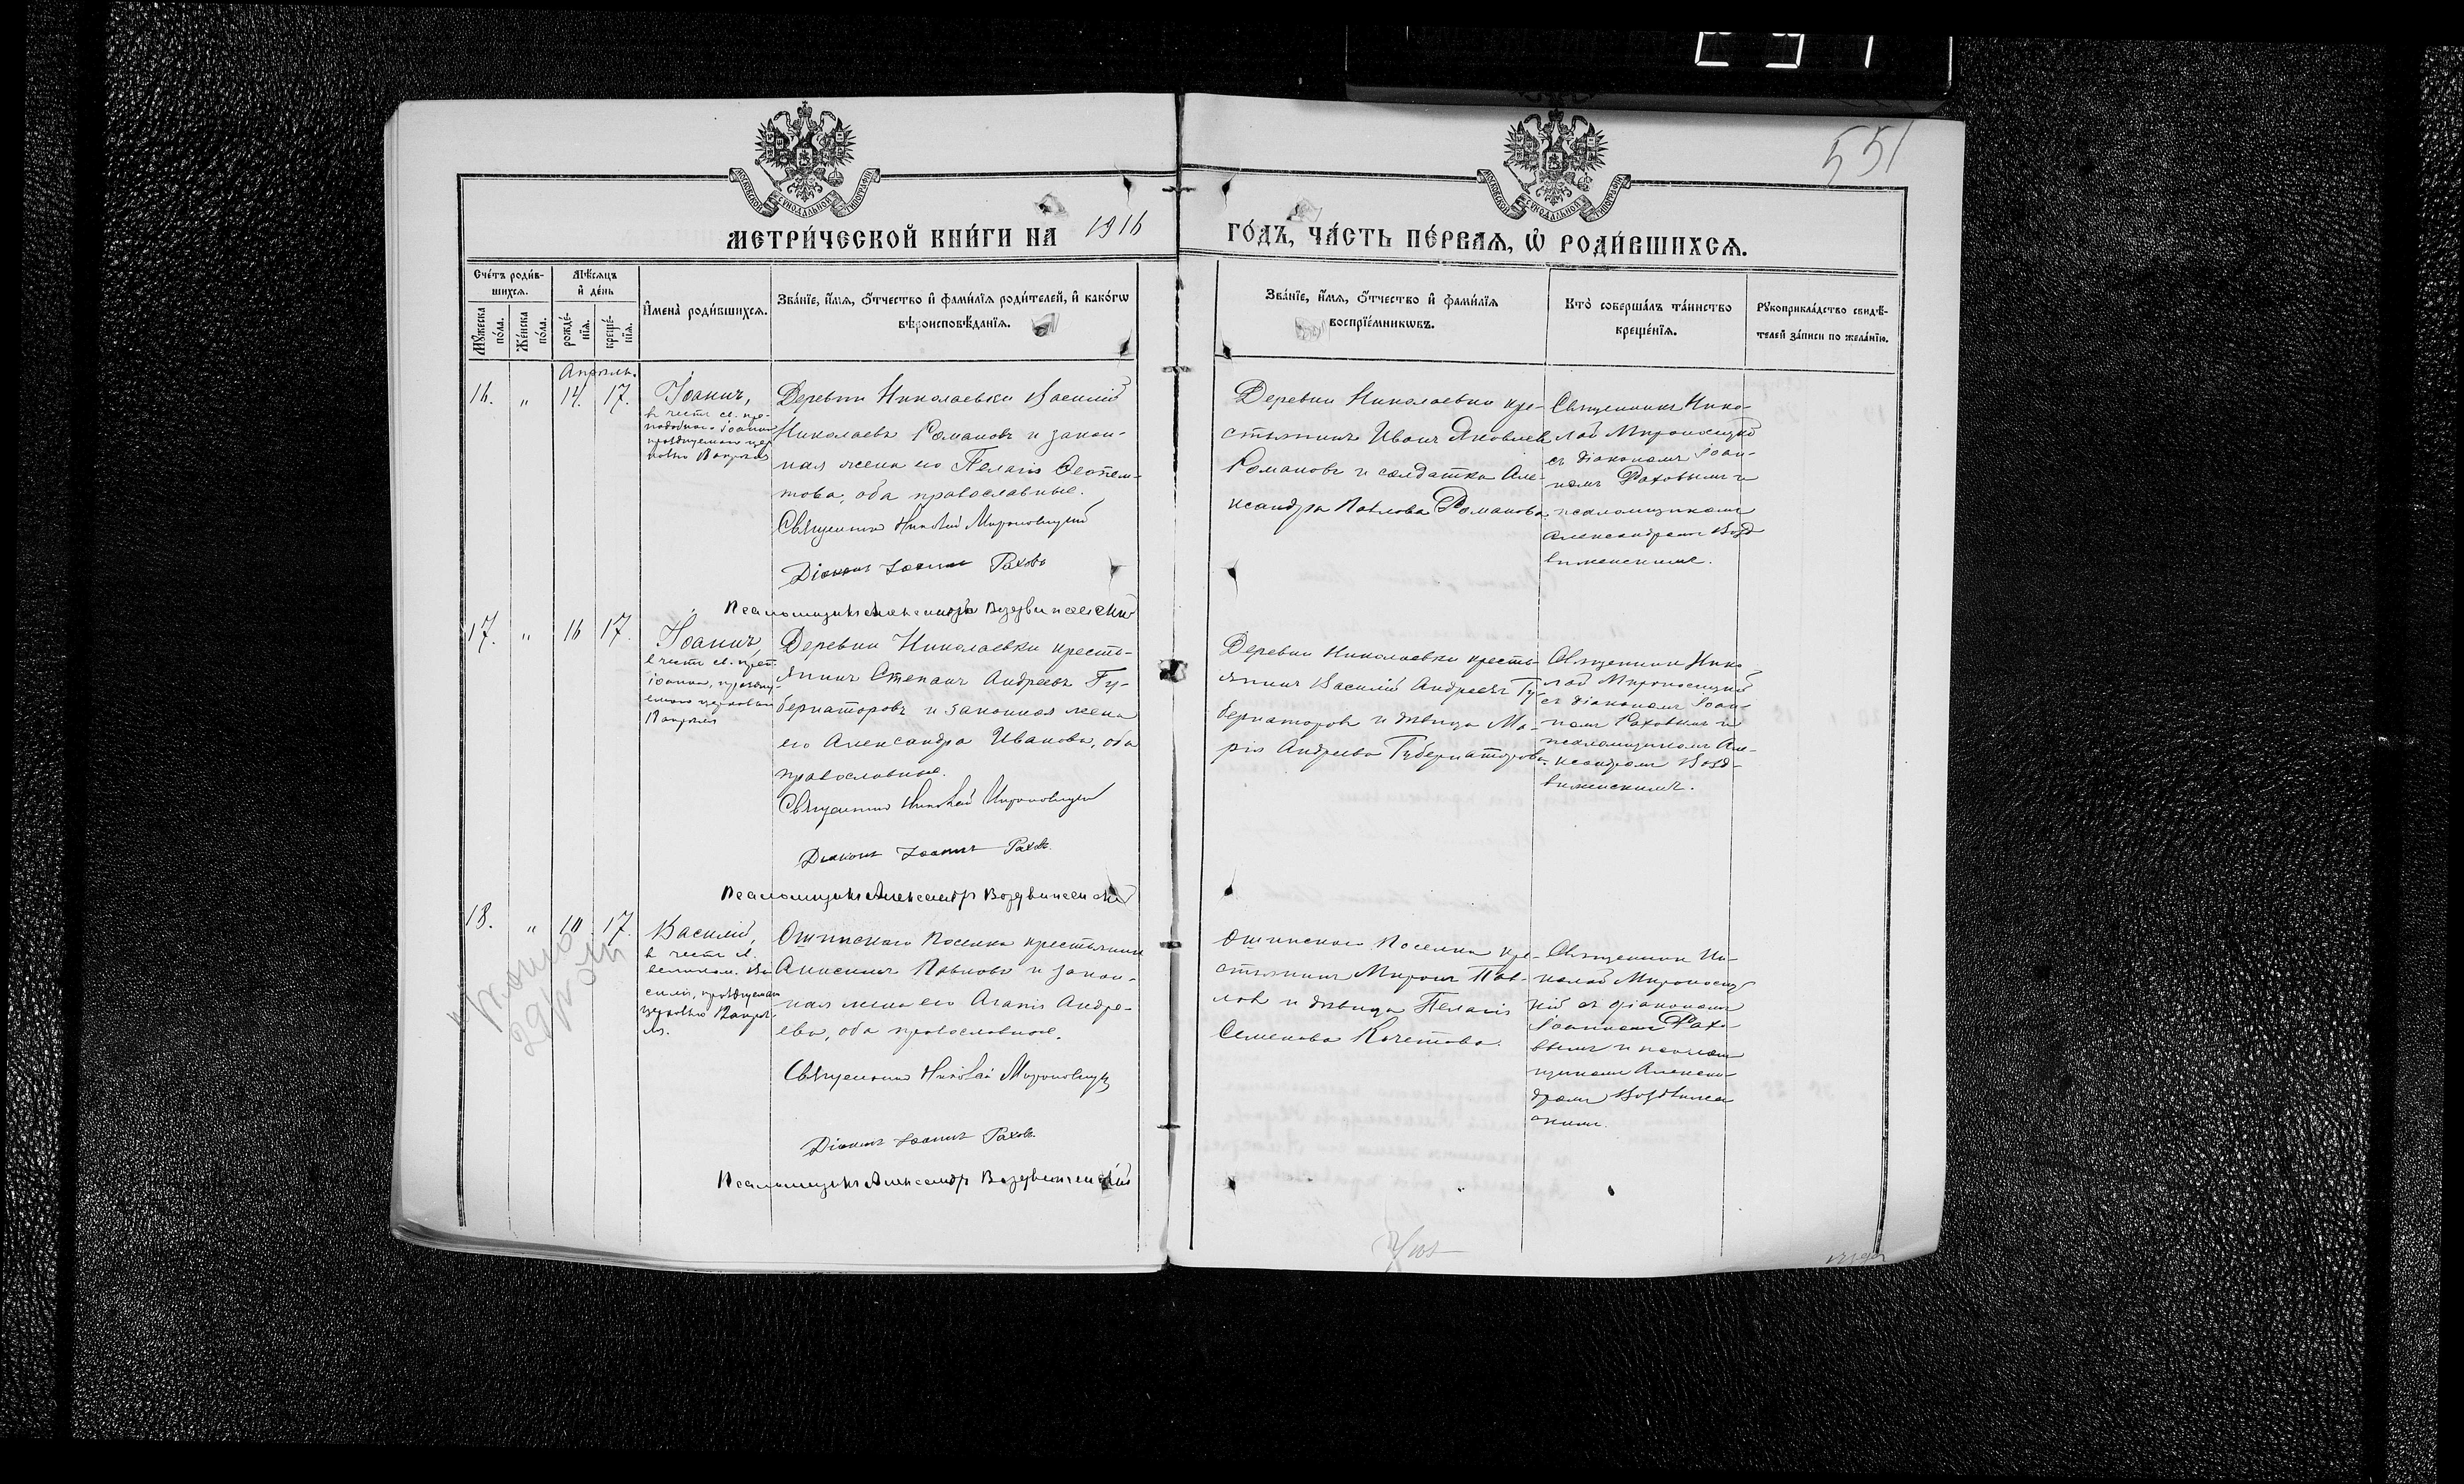 551
МОСКОВСКОЙ СѴНОДАЛЬНОЙ ТИПОГРАФІИ
МОСКОВСКОЙ СѴНОДАЛЬНОЙ ТИПОГРАФІИ
МЕТРИ́ЧЕСКОЙ КНИ́ГИ НА 1916
ГО́ДЪ, ЧА́СТЬ ПЕ́РВАЯ, Ѡ РОДИ́ВШИХСЯ.
Сче́тъ роди́в-
шихся.
Мѣ́сяцъ
и де́нь
Му́жеска
по́ла.
Же́нска
по́ла.
рожде́-
нїя.
креще́-
нїя.
Имена̀ роди́вшихся.
Зва́нїе, и́мя, ѻ́тчество и фами́лїя роди́телей, и како́гѡ
вѣроисповѣ́данїя.
Зва́нїе, и́мя, ѻ́тчество и фами́лїя
воспрїе́мникѡвъ.
Кто̀ соверша́лъ та́инство
креще́нїя.
Рꙋкоприкла́дство свидѣ́-
телей за́писи по жела́нїю.
Апрѣль.
16. " 14. 17.
Іоаннъ,
въ честь св. пре-
подобнаго Іоанна
празднуемаго цер
ковью 18 апрѣля
Деревни Николаевки Василій
Николаевъ Романовъ и закон-
ная жена его Пелагія
това, оба православные.
Священникъ Николай Мироносицкій
Діаконъ Іоаннъ Раховъ
Псаломщикъ Александръ Воздвиженскій
Деревни Николаевки кре-
стьянинъ Иванъ Яковлев
Романовъ и солдатка Але-
ксандра Павлова Романова
Священникъ Нико-
лай Мироносицкій
съ діакономъ Іоан-
номъ Раховымъ и
псаломщикомъ
Александромъ Возд
виженскимъ.
17. " 16 17.
Іоаннъ,
въ честь св. преп.
Іоанна, празdну-
емаго церковью
18 апрѣля
Деревни Николаевки кресть-
янинъ Степанъ Андреевъ Гу-
бернаторовъ и законная жена
его Александра Иванова, оба
православные.
Священникъ Николай Мироносицкій
Діаконъ Іоаннъ Раховъ.
Псаломщикъ Александръ Воздвиженскій
Деревни Николаевки кресть-
янинъ Василій Андреевъ Гу-
бернаторовъ и дѣвица Ма-
рія Андреева Губернаторова.
Священникъ Нико-
лай Мироносицкій
съ діакономъ Іоан-
номъ Раховымъ и
псаломщикомъ Але-
ксандромъ Возд-
виженскимъ.
18. " 10 17.
Василій,
въ честь св.
великом. Ва
силія, празднуемаго
церковью 12 апрѣ-
ля.
Ошинскаго Поселка крестьянинъ
Анисимъ Павловъ и закон-
ная жена его Агапія Андре-
ева, оба православные.
Священникъ Николай Мироносицкій
Діаконъ Іоаннъ Раховъ.
Псаломщикъ Александръ Воздвиженскій
Ошинскаго Поселка кре-
стьянинъ Миронъ Пав-
ловъ и дѣвица Пелагія
Семенова Кочетова.
Священникъ Ни-
колай Мироносиц
кій съ діакономъ
Іоанномъ Рахо-
вымъ и псалом
щикомъ Алексан-
дромъ Воздвижен
скимъ.